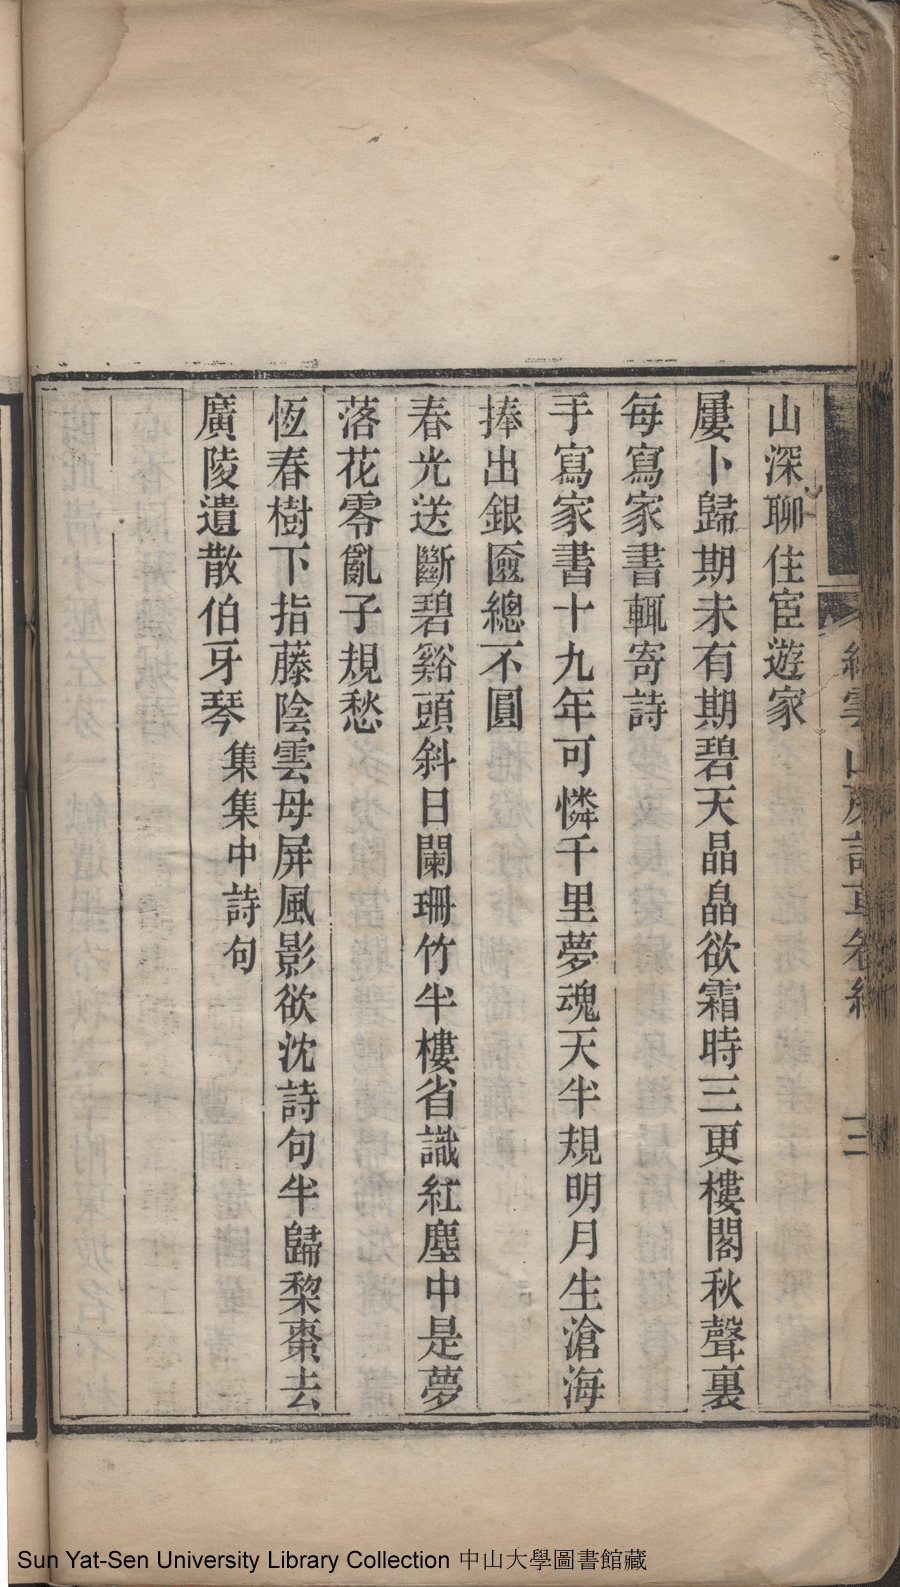 山深聊住宦遊家
屢卜歸期未有期碧天晶皛欲霜時三更樓閣秋聲裏
每寫家書輒寄詩
手寫家書十九年可憐千里夢魂天半規明月生滄海
捧出銀匳總不圓
春光送斷碧谿頭斜日闌珊竹半樓省識紅塵中是夢
落花零亂子規愁
恆春樹下指藤陰雲母屏風影欲沈詩句半歸棃棗去
廣陵遺散伯牙琴 集集中詩句
Sun Yat-Sen University Library Collection 中山大學圖書館藏